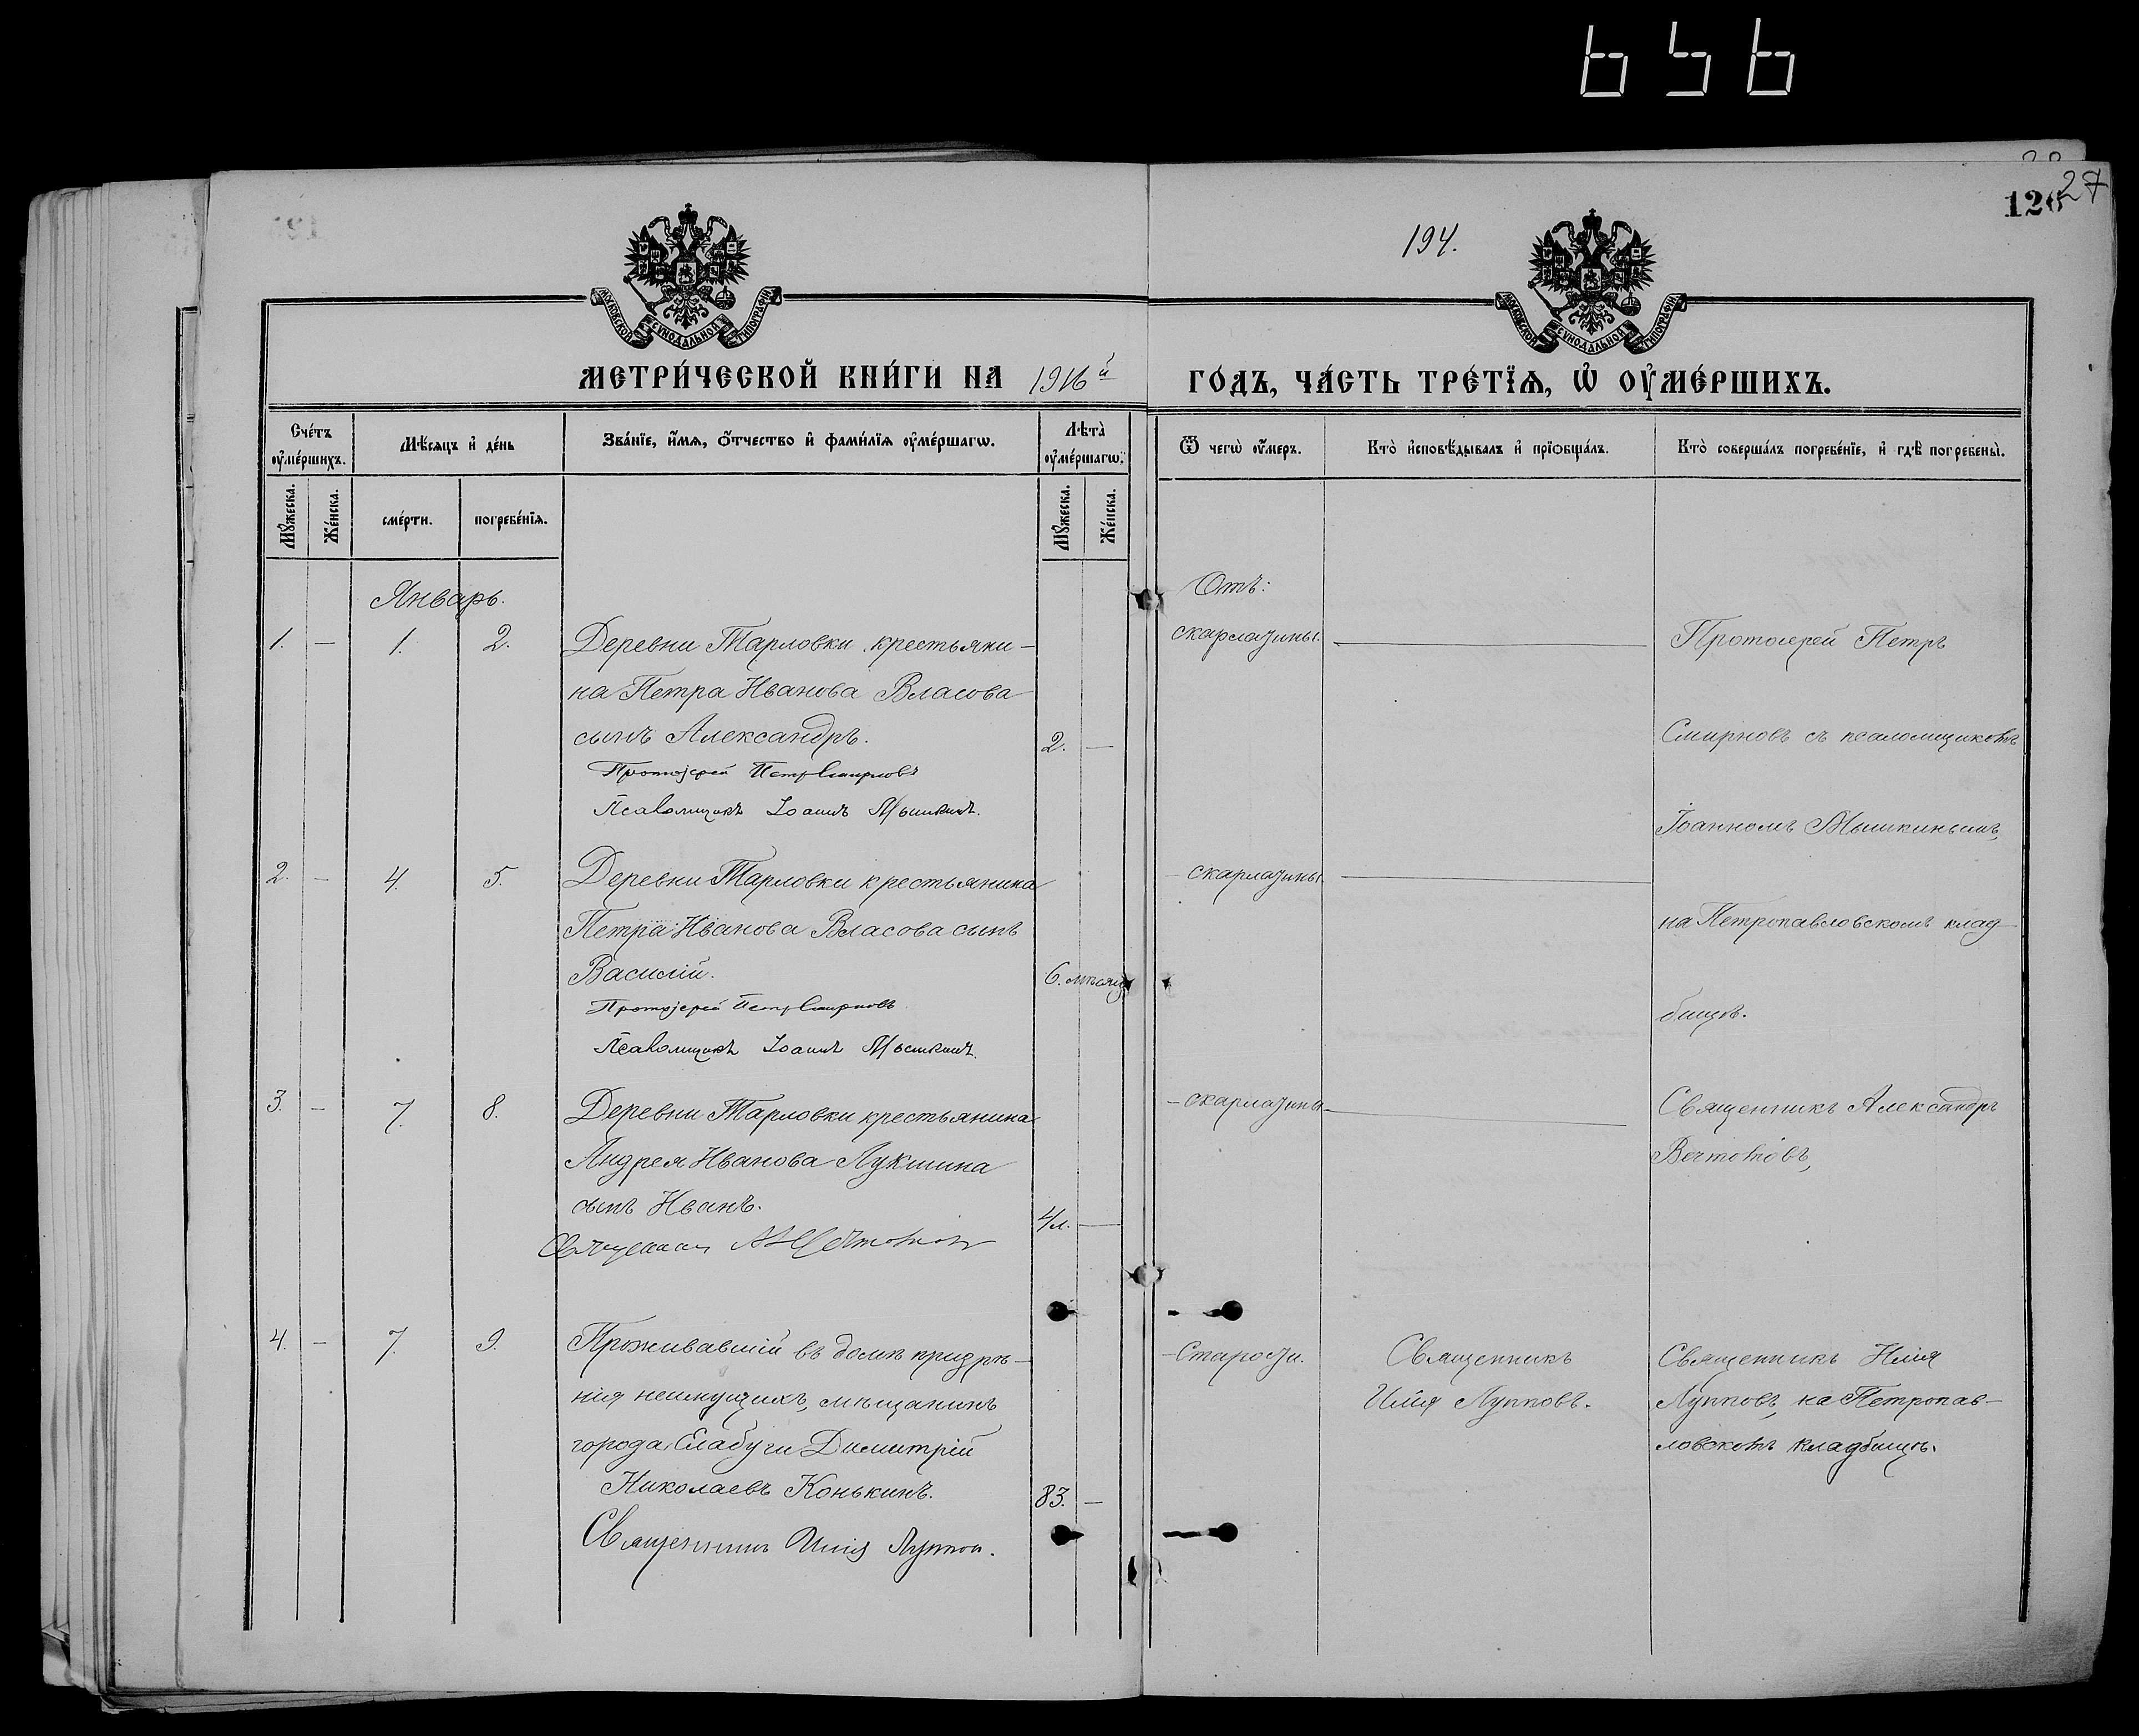 656
27
126
194.
МОСКОВСКОЙ СѴНОДАЛЬНОЙ ТИПОГРАФІИ
МОСКОВСКОЙ СѴНОДАЛЬНОЙ ТИПОГРАФІИ
МЕТРИ́ЧЕСКОЙ КНИ́ГИ НА 1916й ГО́ДЪ, ЧА́СТЬ ТРЕ́ТЇѦ, Ѡ҆ ОУ҆МЕ́РШИХЪ.
Сче́тъ оу҆ме́ршихъ.
Мꙋ́жеска.
Же́нска.
Мѣ́сѧцъ и҆ де́нь
сме́рти.
погребе́нїѧ.
Зва́нїе, и҆́мѧ, ѻ҆́тчество и҆ фами́лїѧ оу҆ме́ршагѡ.
Лѣ́та оу҆ме́ршагѡ.
Мꙋ́жеска.
Же́нска.
Ѿ чегѡ̀ оу҆́меръ.
Кто̀ и҆сповѣ́дывалъ и҆ прїѡбща́лъ.
Кто̀ соверша́лъ погребе́нїе, и҆ гдѣ̀ погребены̀.
Январь.
Отъ:
1. — 1. 2. Деревни Тарловки крестьяни-
на Петра Иванова Власова
сынъ Александръ. 2. —
Протоіерей Петръ Смирновъ
Псаломщикъ Іоаннъ Мышкинъ.
скарлатины.
Протоіерей Петръ
Смирновъ съ псаломщикомъ
Іоанномъ Мышкинымъ,
на Петропавловскомъ клад-
бищѣ.
2. — 4. 5. Деревни Тарловки крестьянина
Петра Иванова Власова сынъ
Василій. 6. мѣсяц
Протоіерей Петръ Смирновъ
Псаломщикъ Іоаннъ Мышкинъ.
- скарлатины.
3. — 7. 8. Деревни Тарловки крестьянина
Андрея Иванова Лукшина
сынъ Иванъ. 4 л. —
Священникъ
- скарлатины -
Священникъ Александръ
4. — 7. 9. Проживавшій въ домѣ призрѣ-
нія неимущихъ, мѣщанинъ
города Елабуги Димитрій
Николаевъ Конькинъ. 83. —
Священникъ Илія Луппов.
- Старости.
Священникъ
Илія Лупповъ.
Священникъ Илія
Лупповъ, на Петропав-
ловскомъ кладбищѣ.